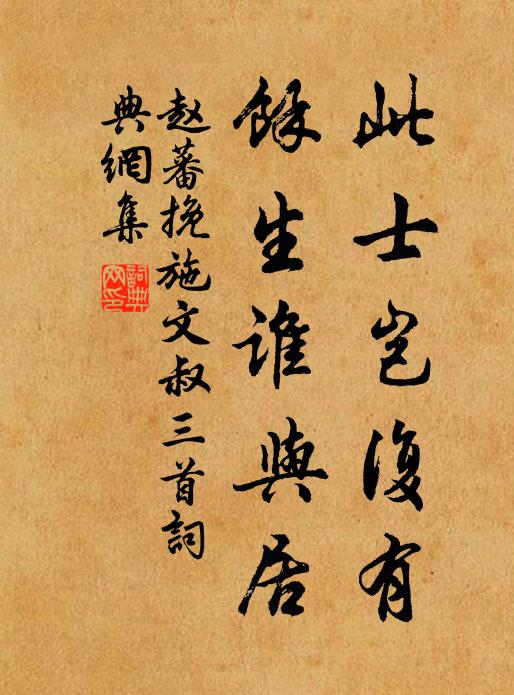 此士岂復有
餘生誰與居
赵蕃挽施文叔三首詞
典網集
詞典
网印